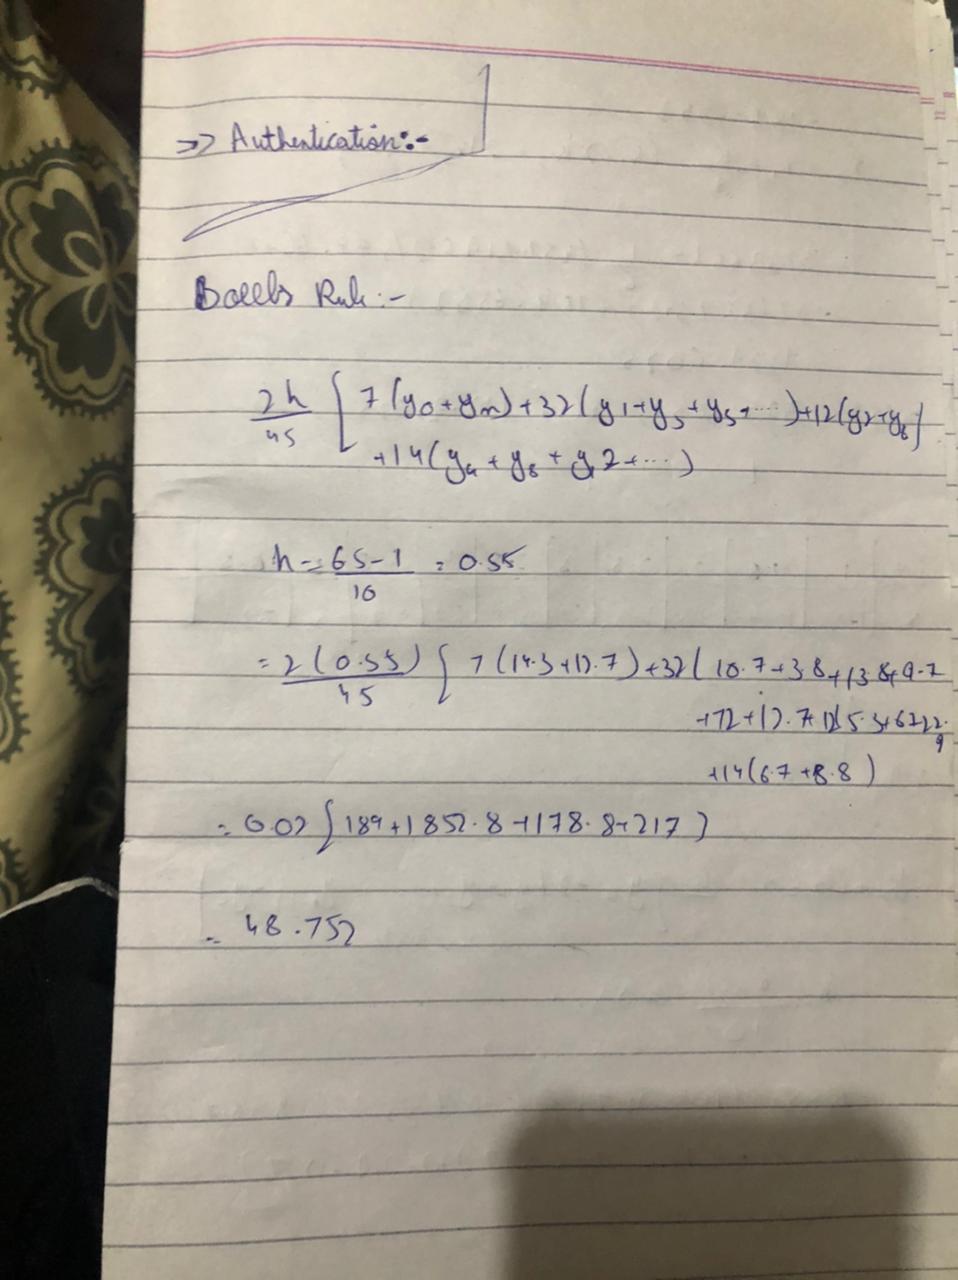 => Authentication:-
Booles Rule :-
2h/45 [ 7(y0+yn)+32(y1+y3+y5+....)+12(y2+y6)
+14(y4+y8+y12+...)
h = 65-1/10 = 0.55
= 2(0.55)/45 [ 7(14.3+12.7)+32(10.7+3.8+13.8+9.7
+14(6.7+8.8)
= 0.02 [ 189+1852.8+178.8+217 ]
= 48.752